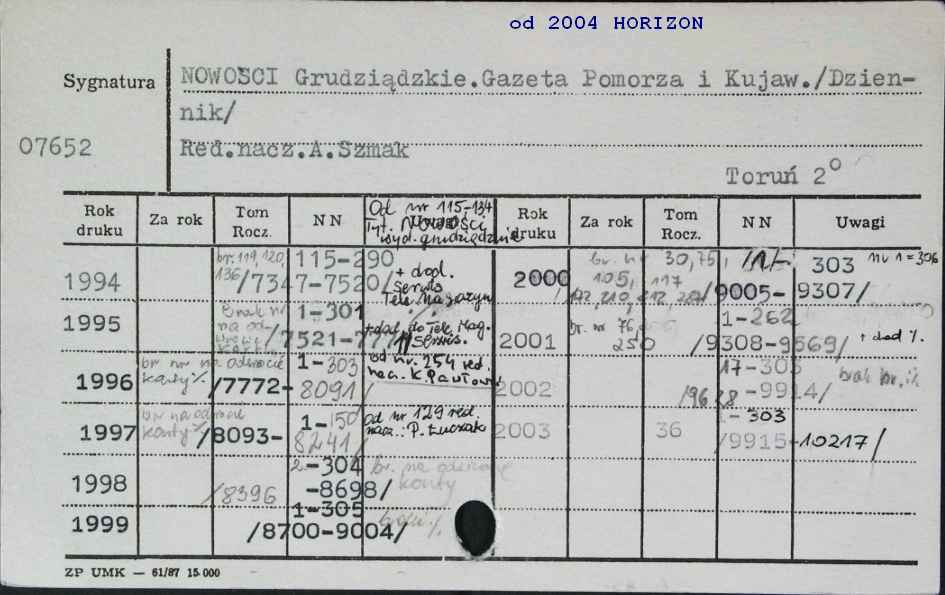 od 2004 HORIZON
Sygnatura
NOWOŚCI Grudziądzkie.Gazeta Pomorza i Kujaw./Dzien-
nik/
07652
Red.nacz.A.Szmak
Toruń 2°
Rok druku Za rok Tom Rocz. N N Uwagi Rok druku Za rok Tom Rocz. N N Uwagi
Od nr 115-134
Tyt. Nowości
wyd. grudziądzkie
1994 br. 119, 120, 136 /7347-7520/ 115-290 + dod. Serwis Tele Magazyn
1995 Brak nr na od- /7521-777 1-301 + dod. do Tele Mag. Serwis.
1996 br nr na odwrocie karty % /7772-8091/ 1-303 od nr. 254 red. nacz. K.
1997 br na odwrocie karty % /8093-8241/ 1-150 Od nr 129 red. nacz.: P. Łuczak
1998 /8396-8698/ 2-304 br. na odwrocie karty
1999 /8700-9004/ 1-305
2000 br. nr 30, 75, 105, 117 /9005-9307/ 303 nr 1=306
2001 br. nr 76, 250 /9308-9569/ 1-262 + dod %.
2002 -9914/ 17-303 brak
2003 36 /9915-10217/ 1-303
ZP UMK — 61/87 15 000